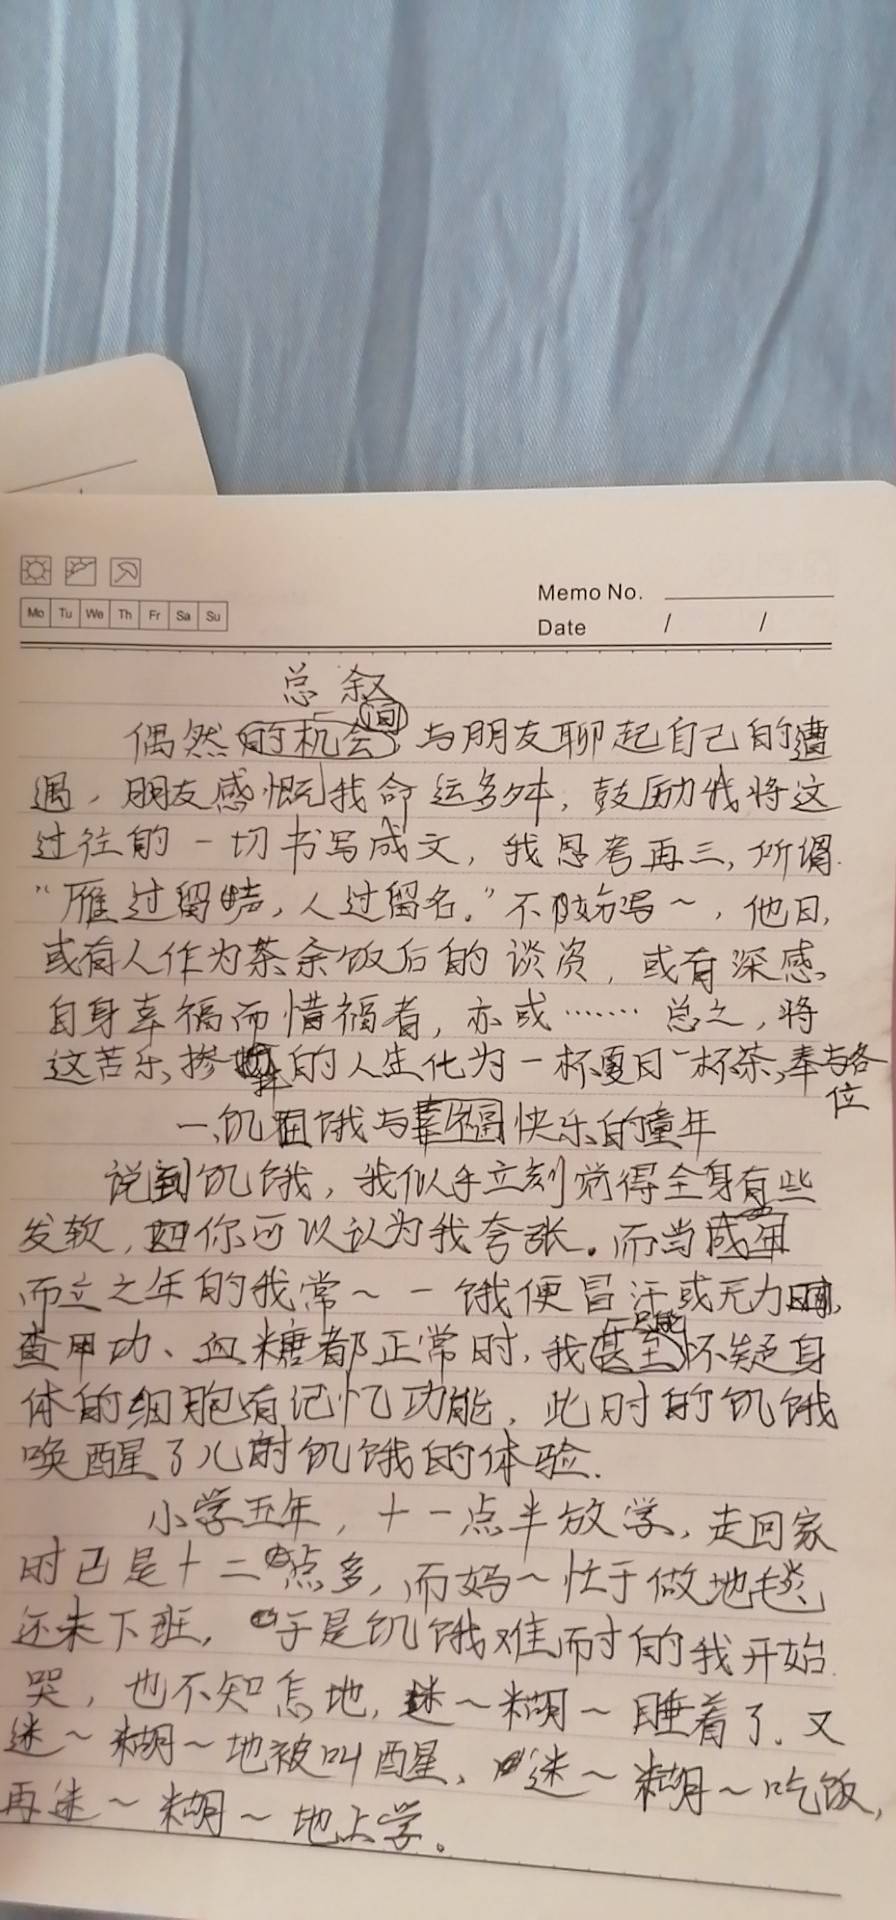 Memo No.
Mo Tu We Th Fr Sa Su
Date / /
总叙
偶然间的机会,与朋友聊起自己的遭
遇,朋友感慨我命运多舛,鼓励我将这
过往的一切书写成文,我思考再三,所谓
“雁过留声,人过留名。”不妨写~,他日,
或有人作为茶余饭后的谈资,或有深感
自身幸福而惜福者,亦或……总之,将
这苦乐掺 的人生化为一杯夏日一杯茶,奉与各
位
一、饥饿与幸福快乐的童年
说到饥饿,我似乎立刻觉得全身有些
发软,但你可以认为我夸张。而当成年
而立之年的我常~一饿便冒汗或无力时,
查甲功、血糖都正常时,我甚至只能怀疑身
体的细胞有记忆功能,此时的饥饿
唤醒了儿时饥饿的体验.
小学五年,十一点半放学,走回家
时已是十二点多,而妈~忙于做地毯
还未下班,于是饥饿难耐的我开始
哭,也不知怎地,迷~糊~睡着了.又
迷~糊~地被叫醒、迷~糊~吃饭,
再迷~糊~地上学。